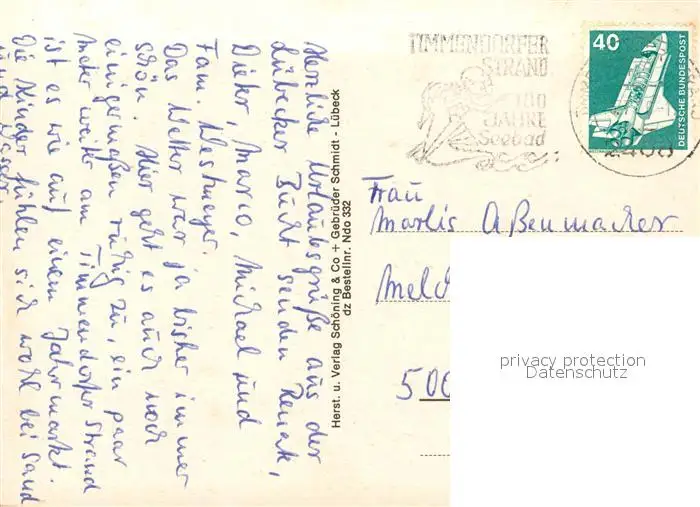 Herzliche Urlaubsgrüße aus der
Lübecker Bucht senden Renate,
Dieter, Mario, Michael und
Fam. Westmeyer.
Das Wetter war ja bisher immer
schön. Hier geht es auch noch
einigermaßen ruhig zu, ein paar
Meter weiter am Timmendorfer Strand
ist es wie auf einem Jahrmarkt.
Die Kinder fühlen sich wohl bei Sand
und Wasser.
Herst. u. Verlag Schöning & Co + Gebrüder Schmidt - Lübeck
dz Bestellnr. Ndo 332
TIMMENDORFER
STRAND
100
JAHRE
Seebad
40
DEUTSCHE BUNDESPOST
2408
Frau
Marlis Aßenmacher
500
privacy protection
Datenschutz